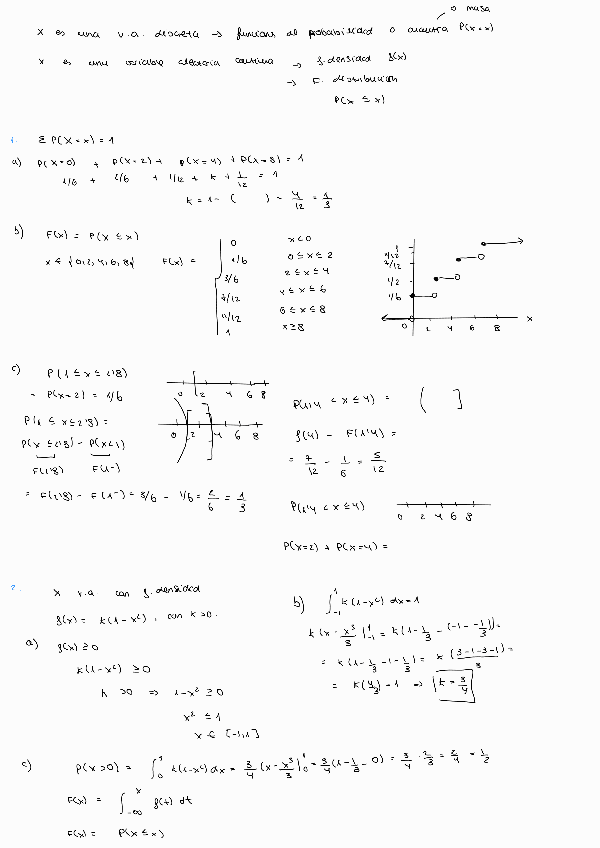 o masa
X es una v.a. discreta → funcions de probabilidad o cuantía P(X=x)
X es una variable aleatoria continua → f. densidad f(x)
→ F. distribución
P(X ≤ x)
1. Σ P(X=x) = 1
a) P(X=0) + P(X=2) + P(X=4) + P(X=8) = 1
1/6 + 2/6 + 1/12 + k + 1/12 = 1
k = 1 - ( ) = 4/12 = 1/3
b) F(x) = P(X ≤ x)
x ∈ {0,2,4,6,8} F(x) =
0 x<0
1/6 0 ≤ x ≤ 2
3/6 2 ≤ x ≤ 4
7/12 4 ≤ x ≤ 6
11/12 6 ≤ x ≤ 8
1 x ≥ 8
1
11/12
7/12
1/2
1/6
0 2 4 6 8 x
c) P(1 ≤ x ≤ 2'8)
= P(X=2) = 2/6
0 2 4 6 8
P(1 ≤ x ≤ 2'8) =
P(X ≤ 2'8) - P(X<1)
F(2'8) F(1-)
0 2 4 6 8
= F(2'8) - F(1-) = 3/6 - 1/6 = 2/6 = 1/3
P(1'4 < x ≤ 4) = ( ]
f(4) - F(1'4) =
= 7/12 - 1/6 = 5/12
P(1'4 < x ≤ 4)
0 2 4 6 8
P(X=2) + P(X=4) =
2. X v.a. con f. densidad
f(x) = k(1-x²), con k>0.
a) f(x) ≥ 0
k(1-x²) ≥ 0
k >0 ⇒ 1-x² ≥ 0
x² ≤ 1
x ∈ [-1,1]
b) ∫₋₁¹ k(1-x²) dx = 1
k(x - x³/3 |₋₁¹ = k(1 - 1/3 - (-1 - -1/3)) =
= k(1 - 1/3 - 1 - 1/3) = k (3-1-3-1)/3 =
= k(4/3) = 1 ⇒ k = 3/4
c) P(X>0) = ∫₀¹ k(1-x²) dx = 3/4 (x - x³/3)₀¹ = 3/4 (1 - 1/3 - 0) = 3/4 · 2/3 = 2/4 = 1/2
F(x) = ∫₋∞ˣ f(t) dt
F(x) = P(X ≤ x)